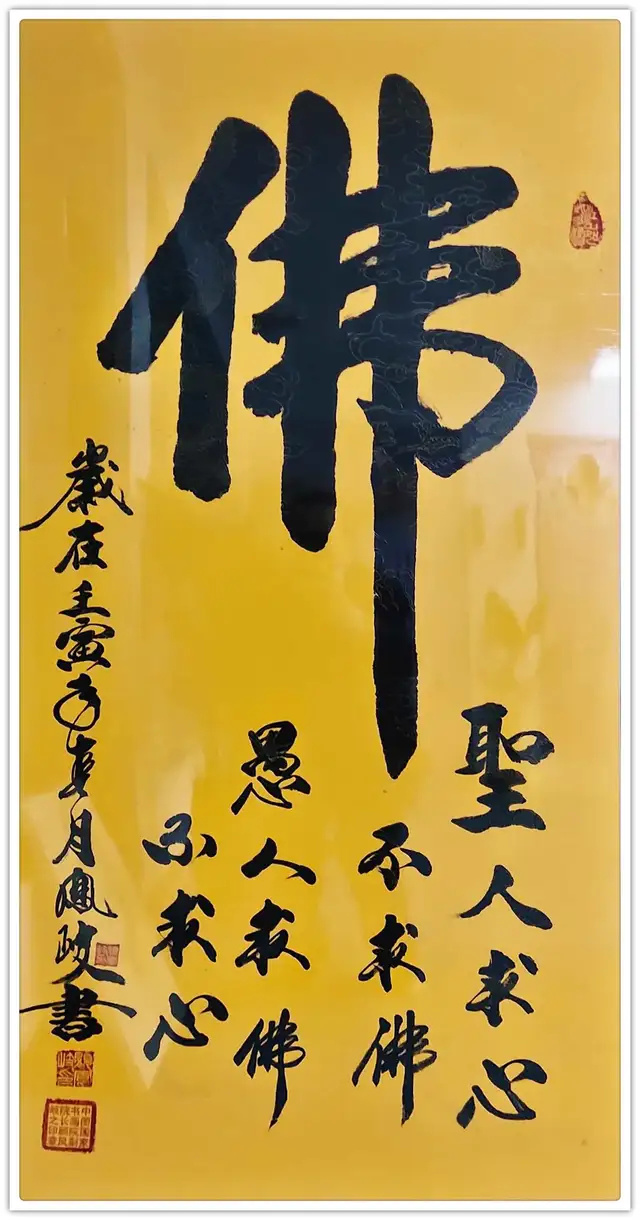 佛
聖人求心
不求佛
愚人求佛
不求心
歲在壬寅年月鳳書